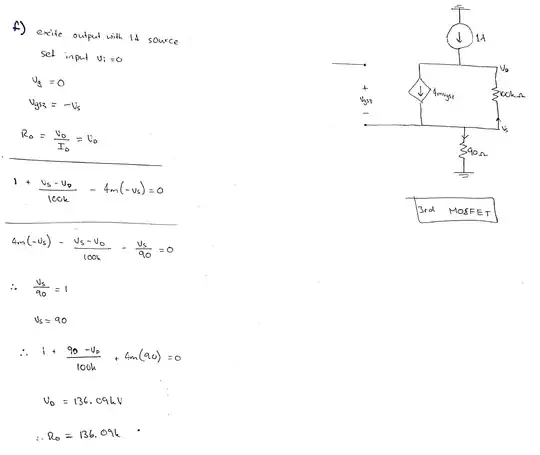 f) excite output with 1A source
set input Vi=0
Vg = 0
Vgs3 = -Vs
Ro = VD/ID = VD
1 + (Vs - VD)/100k - 4m(-Vs) = 0
4m(-Vs) - (Vs - VD)/100k - Vs/90 = 0
∴ Vs/90 = 1
Vs = 90
∴ 1 + (90 - VD)/100k + 4m(90) = 0
VD = 136.09kV
∴ Ro = 136.09k
1A
VD
+
Vgs3
-
4mVgs3
100kΩ
Vs
90Ω
3rd MOSFET